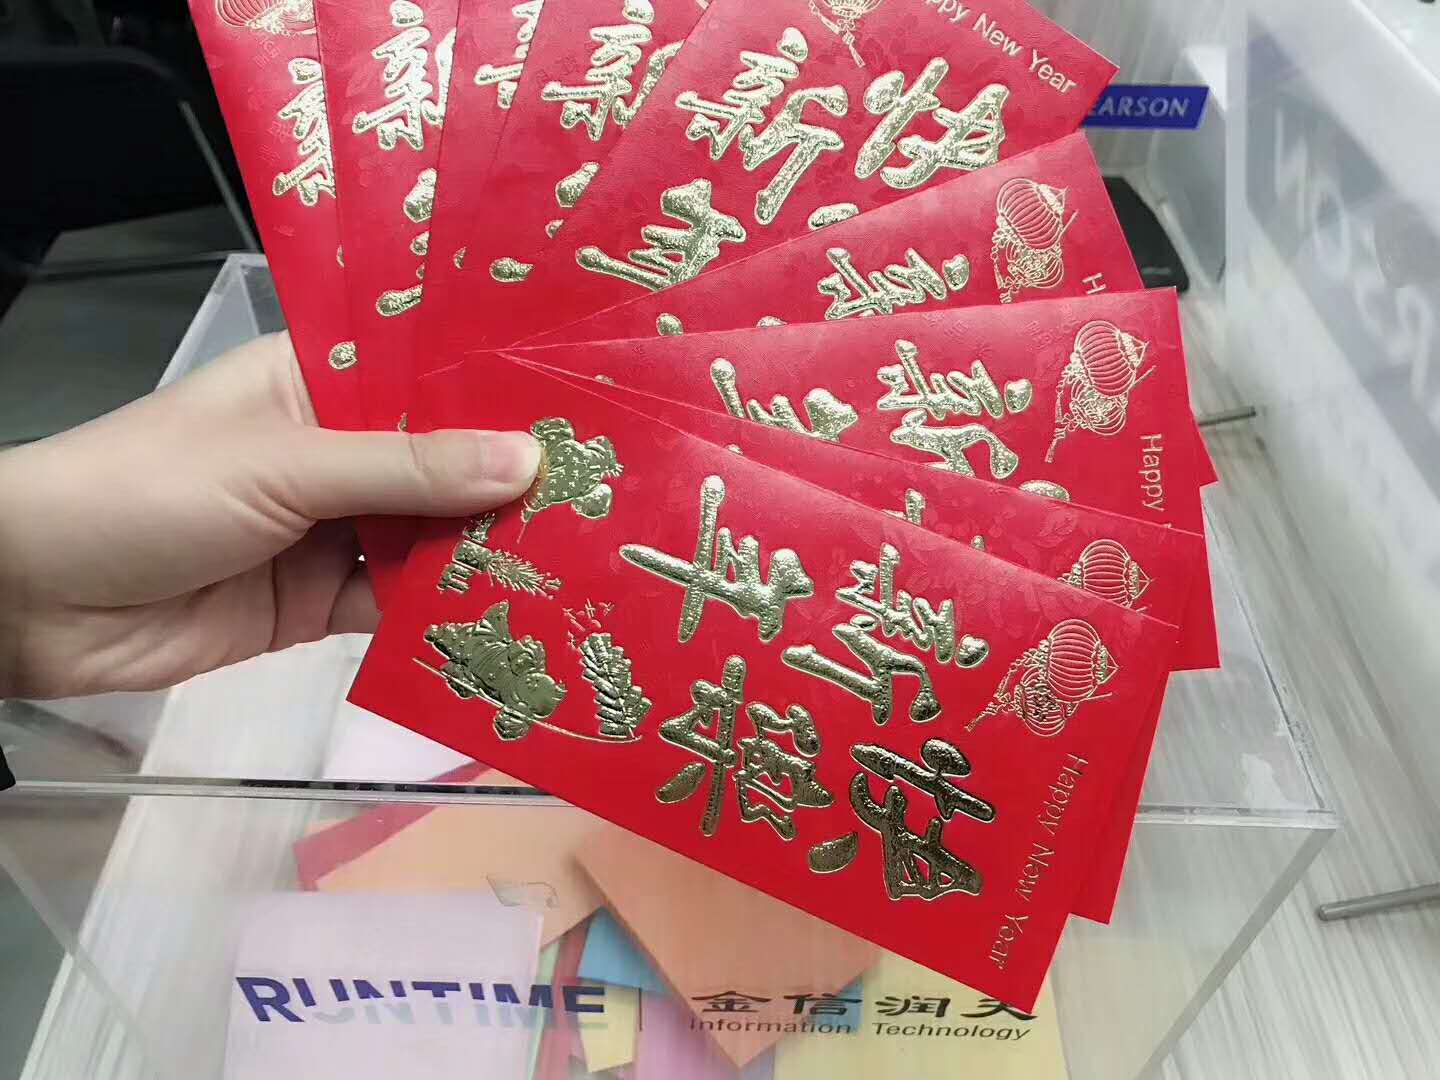 ppy New Year
新快
年
EARSON
新
新
新
新
年
H
新
年
Happy
新年
快樂
Happy New Year
RUNTIME
金信润天
Information Technology